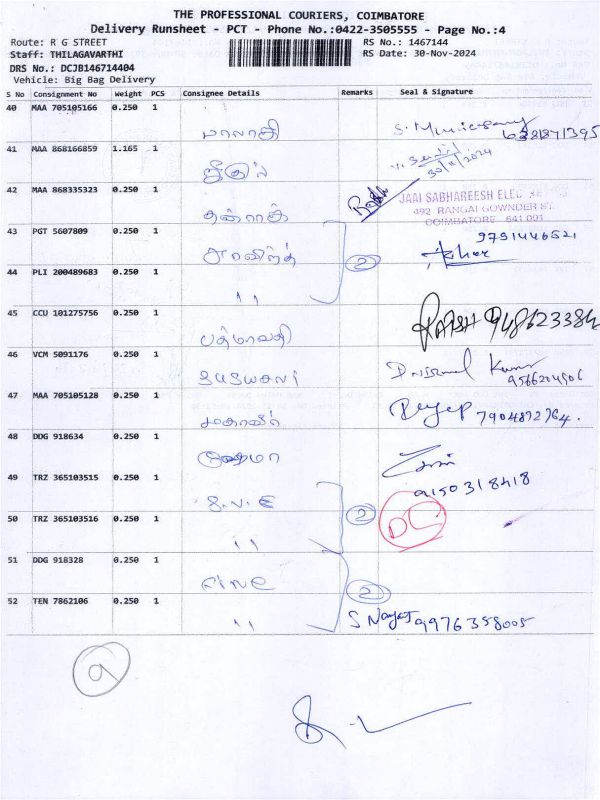 THE PROFESSIONAL COURIERS, COIMBATORE
Delivery Runsheet - PCT - Phone No.:0422-3505555 - Page No.:4
Route: R G STREET RS No.: 1467144
Staff: THILAGAVARTHI RS Date: 30-Nov-2024
DRS No.: DCJB146714404
Vehicle: Big Bag Delivery
S No Consignment No Weight PCS Consignee Details Remarks Seal & Signature
40 MAA 705105166 0.250 1
மாலாதி
41 MAA 868166859 1.165 1
30/11/2024
42 MAA 868335323 0.250 1
தன்ராக்
JAAI SABHAREESH ELEC
492 RANGAI GOWNDER ST.
COIMBATORE 641 001
43 PGT 5607809 0.250 1 9791446521
அரவிந்த் 2
44 PLI 200489683 0.250 1
"
45 CCU 101275756 0.250 1
பத்மாவதி
46 VCM 5091176 0.250 1
Kumar
9566204506
47 MAA 705105128 0.250 1
மகாவீர் 7904872764.
48 DDG 918634 0.250 1
9150318418
49 TRZ 365103515 0.250 1
S.V.E 2 DC
50 TRZ 365103516 0.250 1
"
51 DDG 918328 0.250 1
FINE 2
52 TEN 7862106 0.250 1
" 9976358005
9